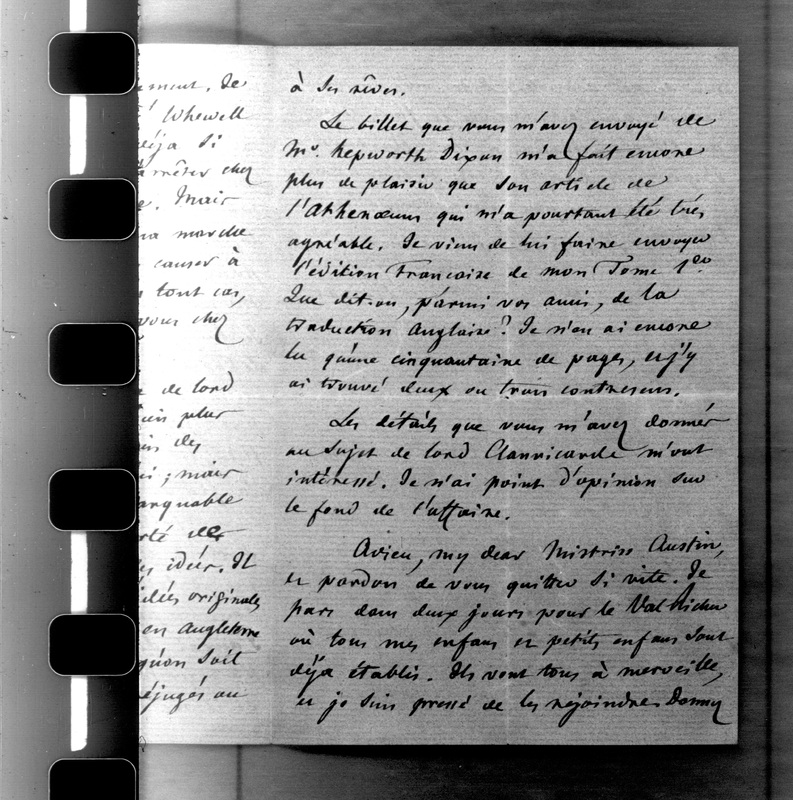 ment. De
Whewell
déja si
arrêter chez
e. Mais
ma marche
causer à
tout cas,
vous chez
e de lord
plus
des
; mais
arquable
rté des
es idées. Il
idées originales
en Angleterre
qu'on soit
éjugés au
à ses rêves.
Le billet que vous m'avez envoyé de
Mr. Hepworth Dixon m'a fait encore
plus de plaisir que son article de
l'Athenæum qui m'a pourtant été très
agréable. Je viens de lui faire envoyer
l'édition Francaise de mon Tome 1er.
Que dit-on, parmi vos amis, de la
traduction Anglaise? Je n'en ai encore
lu qu'une cinquantaine de pages, et j'y
ai trouvé deux ou trois contresens.
Les détails que vous m'avez donnés
au sujet de lord Clanricarde m'ont
intéressé. Je n'ai point d'opinion sur
le fond de l'affaire.
Adieu, my dear Mistriss Austin,
et pardon de vous quitter si vite. Je
pars dans deux jours pour le Val Richer
où tous mes enfans et petits enfans sont
déja établis. Ils vont tous à merveille,
et je suis pressé de les rejoindre. Donnez